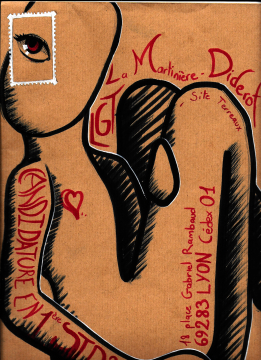 LGT La Martinière - Diderot
- Site Terreaux
18 place Gabriel Rambaud
69283 LYON Cédex 01
CANDIDATURE EN 1ère